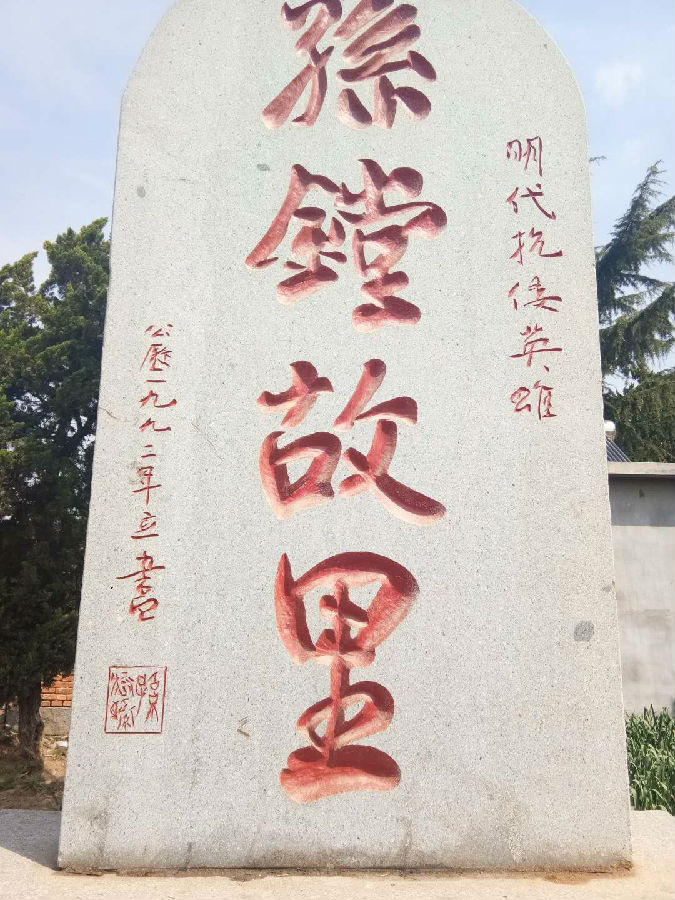 明代抗倭英雄
孫鏜故里
公歷一九九二年立書